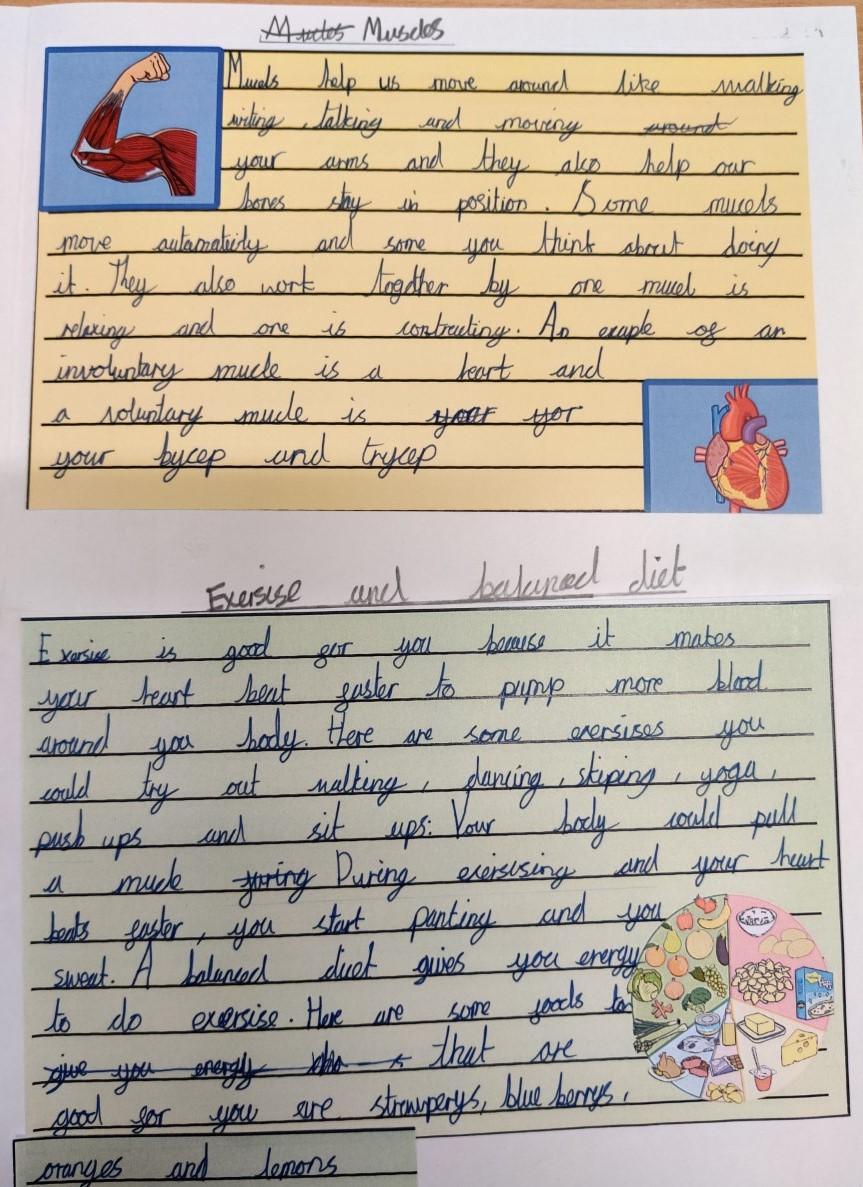 Muscles
Mucels help us move around like walking
writing, talking and moving around
your arms and they also help our
bones stay in position. Some mucels
move automaticly and some you think about doing
it. They also work together by one mucel is
relaxing and one is contracting. An exaple of an
involuntary mucle is a heart and
a voluntary mucle is your yor
your bycep and trycep
Exersise and balanced diet
Exersise is good for you because it makes
your heart beat faster to pump more blood
around you body. Here are some exersises you
could try out walking, dancing, skiping, yoga,
push ups and sit ups. Your body could pull
a mucle During exersising and your heart
beats faster, you start panting and you
sweat. A balanced diet gives you energy
to do exersise. Here are some foods to
give you energy that are
good for you are strawperys, blue berrys,
oranges and lemons